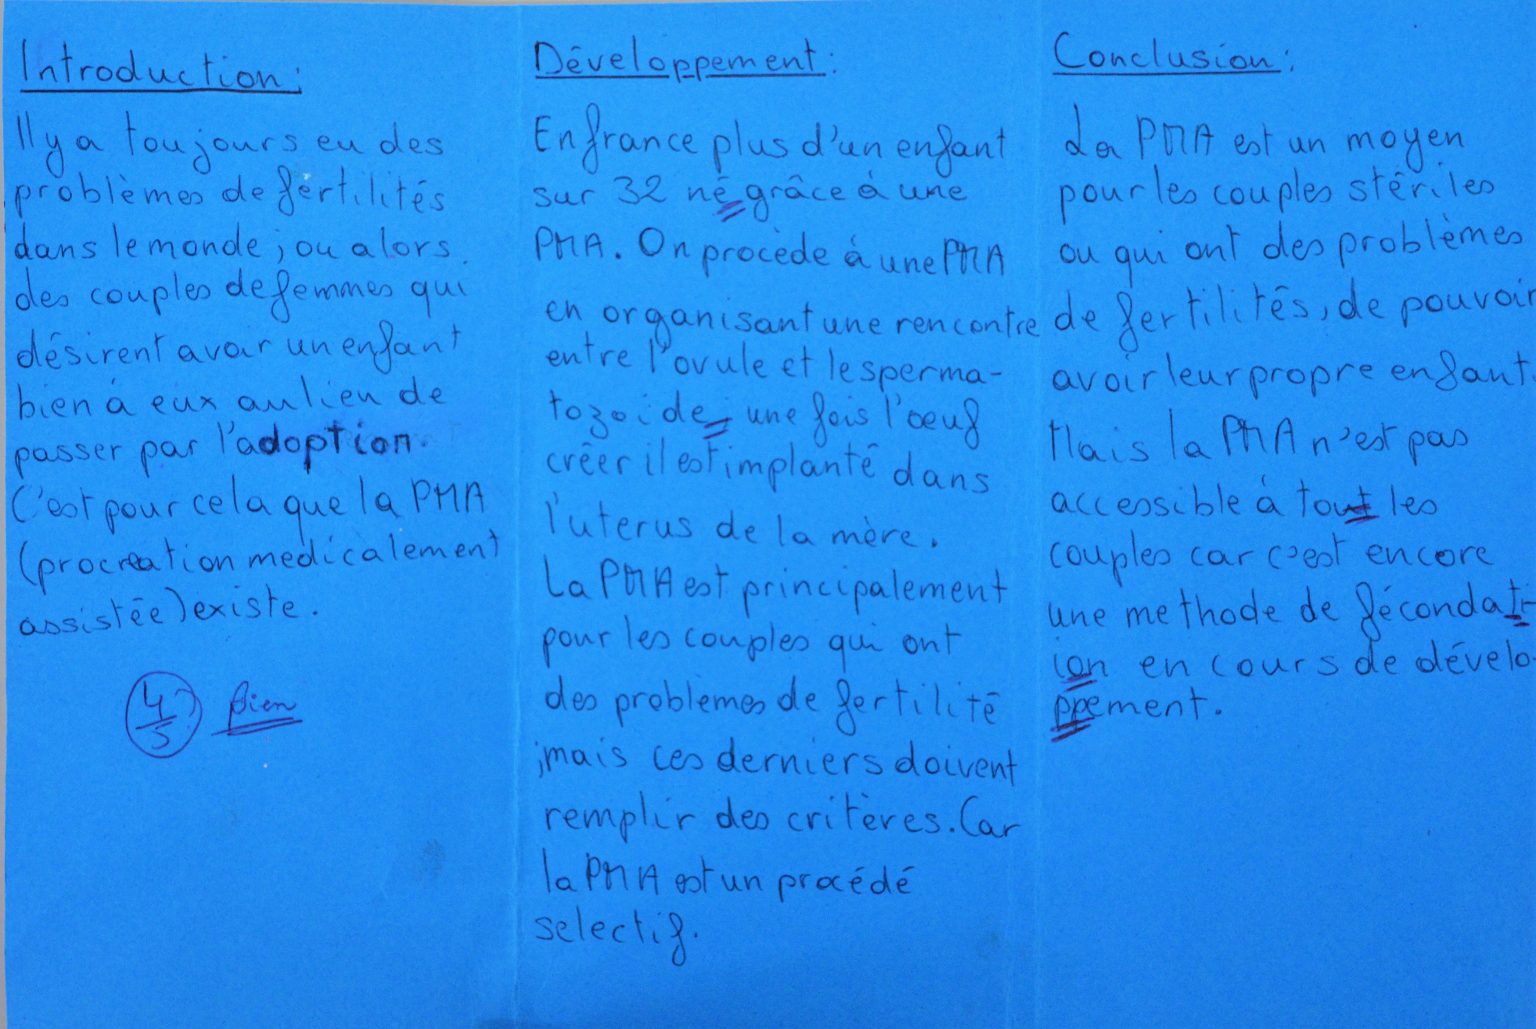 Introduction :
Il y a toujours eu des
problèmes de fertilités
dans le monde ; ou alors
des couples de femmes qui
désirent avoir un enfant
bien à eux au lieu de
passer par l'adoption.
C'est pour cela que la PMA
(procreation medicalement
assistée) existe.
4/5
Bien
Développement :
En france plus d'un enfant
sur 32 né grâce à une
PMA. On procède à une PMA
en organisant une rencontre
entre l'ovule et le sperma-
tozoide, une fois l'œuf
créer il est implanté dans
l'uterus de la mère.
La PMA est principalement
pour les couples qui ont
des problèmes de fertilité
;mais ces derniers doivent
remplir des critères. Car
la PMA est un procédé
selectif.
Conclusion :
La PMA est un moyen
pour les couples stériles
ou qui ont des problèmes
de fertilités, de pouvoir
avoir leur propre enfant.
Mais la PMA n'est pas
accessible à tout les
couples car c'est encore
une methode de fécondat-
ion en cours de dévelo-
ppement.